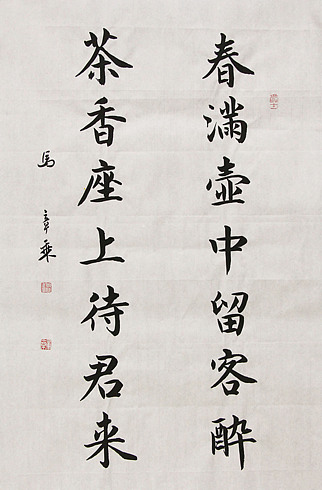 春满壶中留客醉
茶香座上待君来
馬章乘